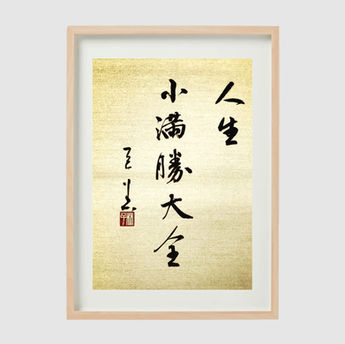 人生
小満勝大全